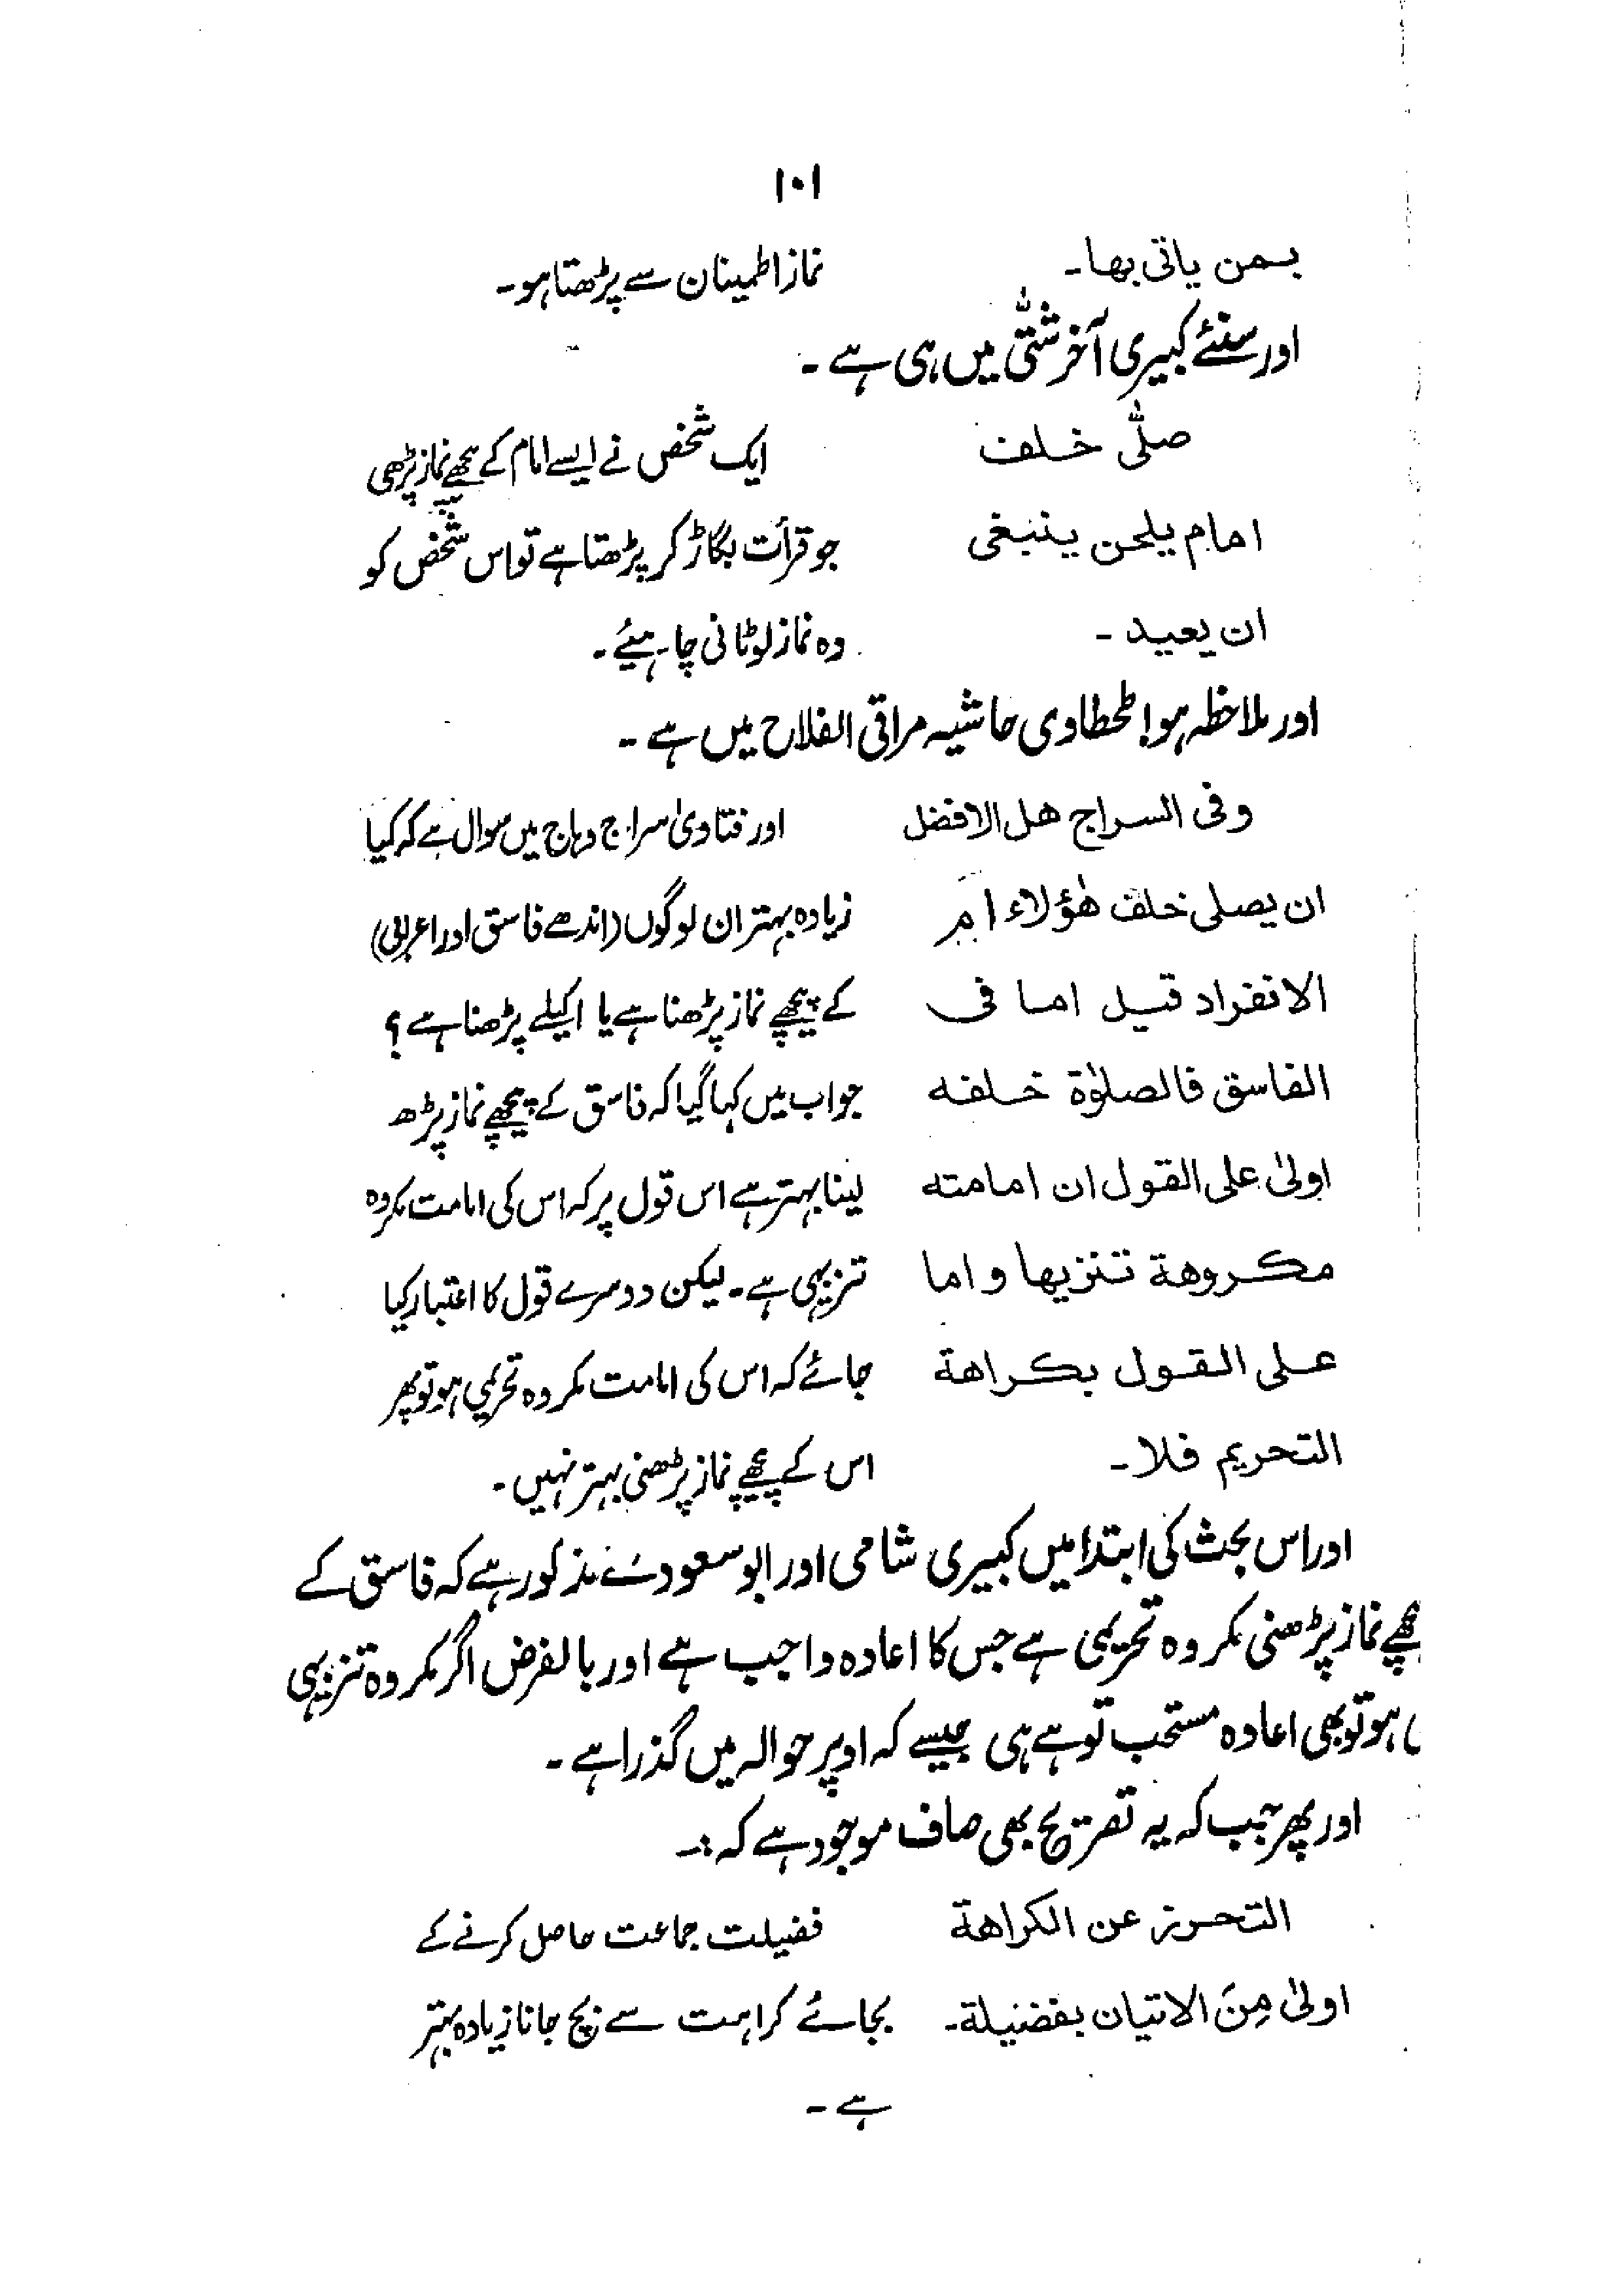 ۱۰۱
بمن یاتی بها۔ نماز اطمینان سے پڑھتا ہو۔
اور سنئے کبیری آخر شتّٰی میں ہی ہے۔
صلّٰی خلف ایک شخص نے ایسے امام کے پیچھے نماز پڑھی
امام یلحن ینبغی جو قرأت بگاڑ کر پڑھتا ہے تو اس شخص کو
ان یعید۔ وہ نماز لوٹانی چاہیئے۔
اور ملاحظہ ہو! طحطاوی حاشیہ مراقی الفلاح میں ہے۔
وفی السراج هل الافضل اور فتاویٰ سراج وہاج میں سوال ہے کہ کیا
ان یصلی خلف هٰؤلاء ام زیادہ بہتر ان لوگوں (اندھے فاسق اور اعرابی)
الانفراد قیل اما فی کے پیچھے نماز پڑھنا ہے یا اکیلے پڑھنا ہے؟
الفاسق فالصلوٰة خلفه جواب میں کہا گیا کہ فاسق کے پیچھے نماز پڑھ
اولیٰ علی القول ان امامته لینا بہتر ہے اس قول پر کہ اس کی امامت مکروہ
مکروهة تنزیها و اما تنزیہی ہے۔ لیکن دوسرے قول کا اعتبار کیا
علی القول بکراهة جائے کہ اس کی امامت مکروہ تحریمی ہو تو پھر
التحریم فلا۔ اس کے پیچھے نماز پڑھنی بہتر نہیں۔
اور اس بحث کی ابتدا میں کبیری شامی اور ابو سعود سے مذکور ہے کہ فاسق کے
پیچھے نماز پڑھنی مکروہ تحریمی ہے جس کا اعادہ واجب ہے اور بالفرض اگر مکروہ تنزیہی
ہو تو بھی اعادہ مستحب تو ہے ہی جیسے کہ اوپر حوالہ میں گذرا ہے۔
اور پھر جب کہ یہ تصریح بھی صاف موجود ہے کہ:۔
التحرز عن الکراهة فضیلت جماعت حاصل کرنے کے
اولیٰ مِنَ الاتیان بفضیلة۔ بجائے کراہت سے بچ جانا زیادہ بہتر
ہے۔